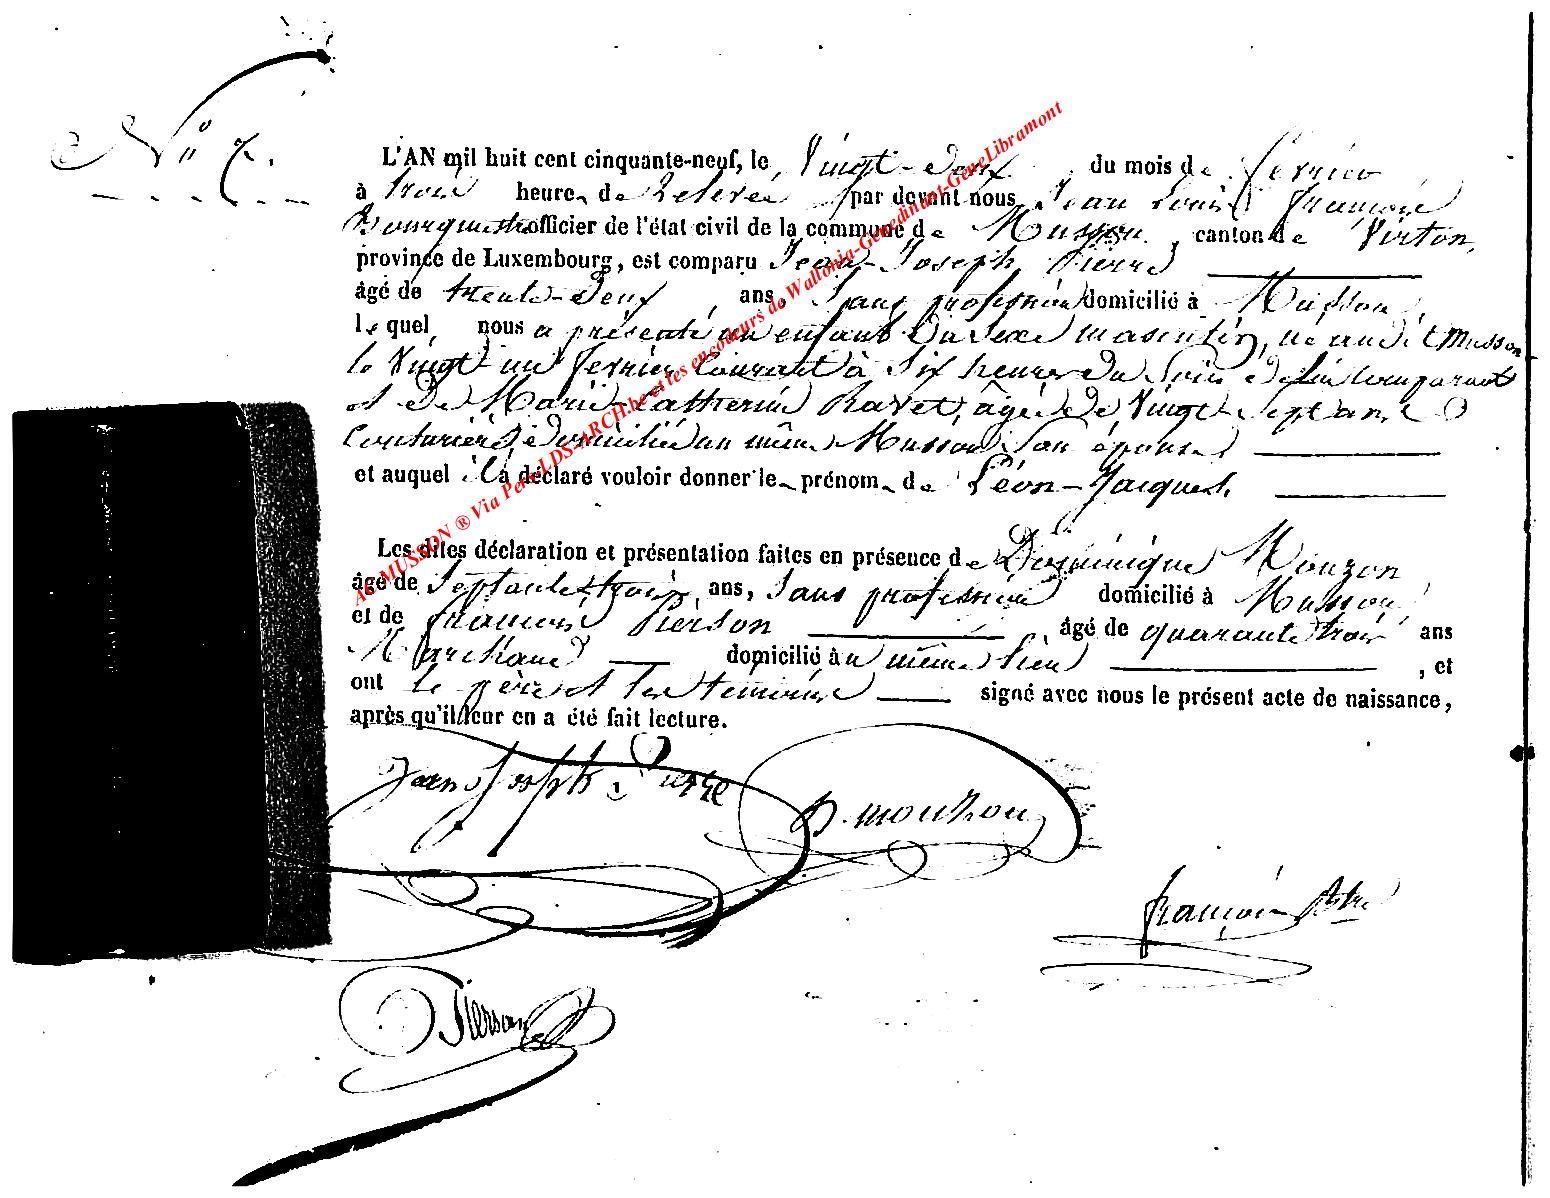 N° 7.
L'AN mil huit cent cinquante-neuf, le Vingt-deux du mois de février
à trois heures de Relevée par devant nous Jean Louis François
officier de l'état civil de la commune de Musson, canton de Virton,
province de Luxembourg, est comparu Jean-Joseph Pierre
âgé de trente-deux ans, Sans profession domicilié à Musson,
lequel nous a présenté un enfant du sexe masculin, né audit Musson
le Vingt-un février Courant à Six heures du Soir de lui Comparant
et de Marie-Catherine Ravet, âgée de Vingt-Sept ans
Couturière domiciliée au même Musson Son épouse
et auquel il a déclaré vouloir donner le prénom de Léon-Jacques.
Les dites déclaration et présentation faites en présence de Dominique Mouzon
âgé de Septante trois ans, Sans profession domicilié à Musson
et de François Pierson, âgé de quarante trois ans
Marchand domicilié au même lieu, et
ont le père et les témoins signé avec nous le présent acte de naissance,
après qu'il leur en a été fait lecture.
Jean Joseph Pierre
D. mouzon
François
Pierson
AC MUSSON ® Via Pers-LDS-ARCH.be et les encodeurs de Wallonia-Genedinant-GeneLibramont